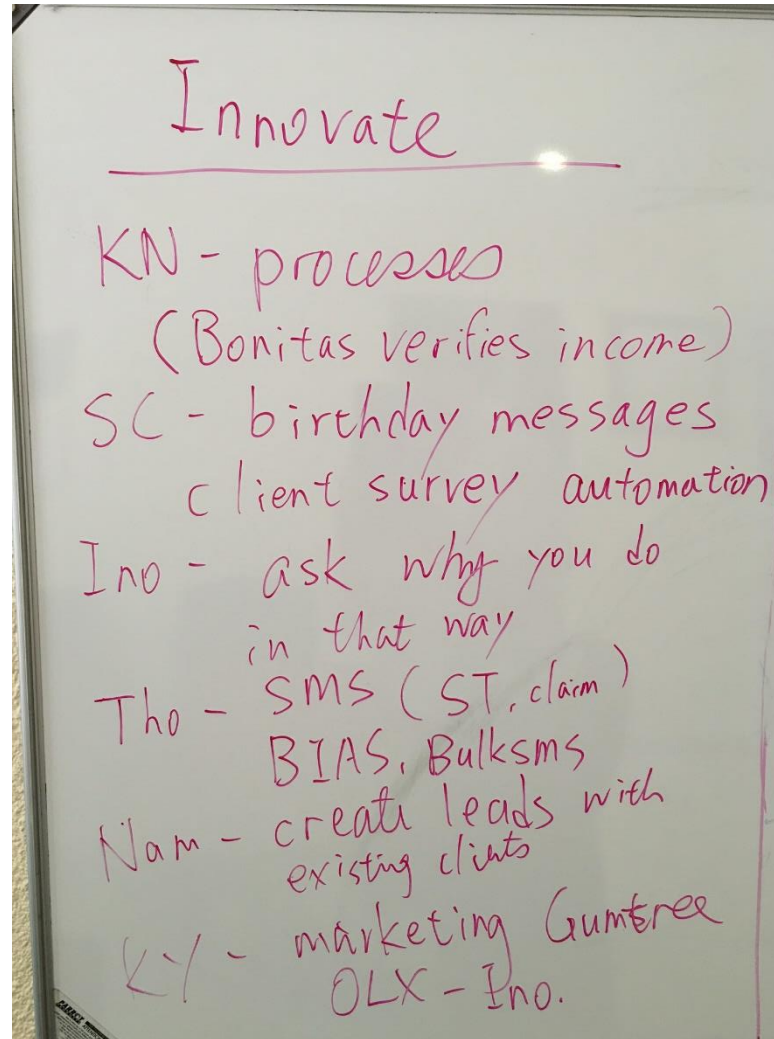 Innovate
KN - processes
(Bonitas verifies income)
SC - birthday messages
client survey automation
Ino - ask why you do
in that way
Tho - SMS (ST, claim)
BIAS, Bulksms
Nam - create leads with
existing clients
KY - marketing Gumtree
OLX - Ino.